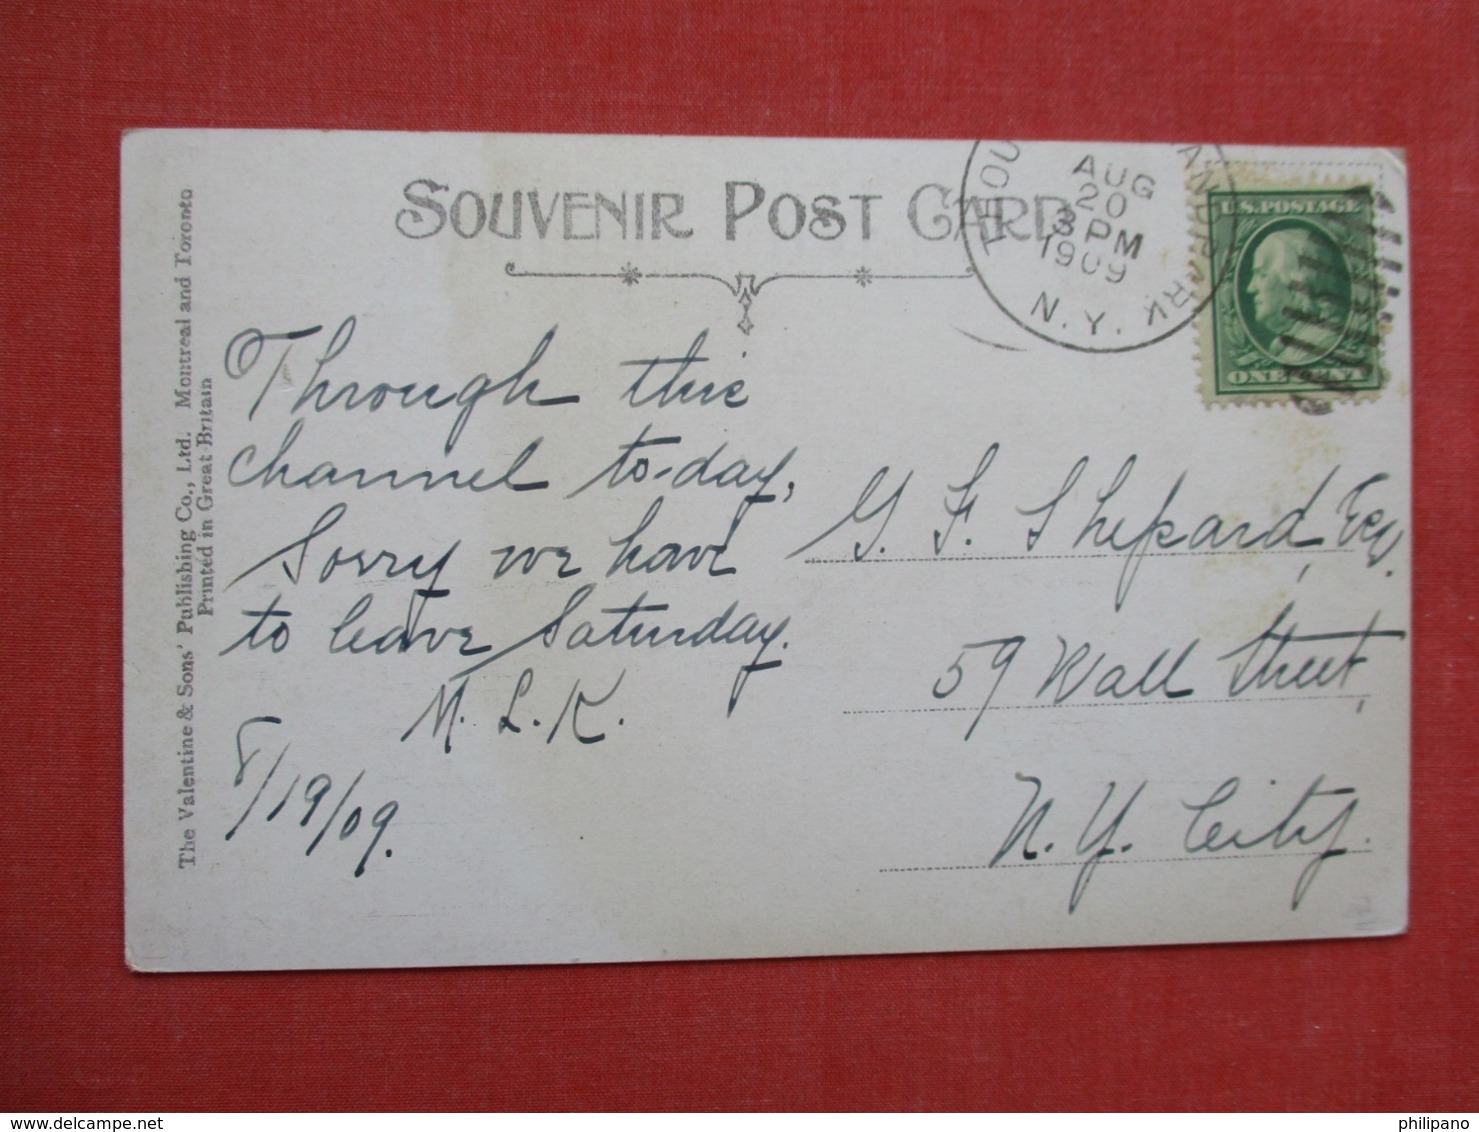 SOUVENIR POST CARD
AUG
20
3 PM
1909
N.Y.
PARK
U.S. POSTAGE
ONE CENT
Through this
channel to-day,
Sorry we have
to leave Saturday.
M. L. K.
8/19/09.
G. F. Shepard, Esq.
59 Wall Street,
N. Y. City.
The Valentine & Sons' Publishing Co., Ltd. Montreal and Toronto
Printed in Great Britain
http://www.delcampe.net
philipano